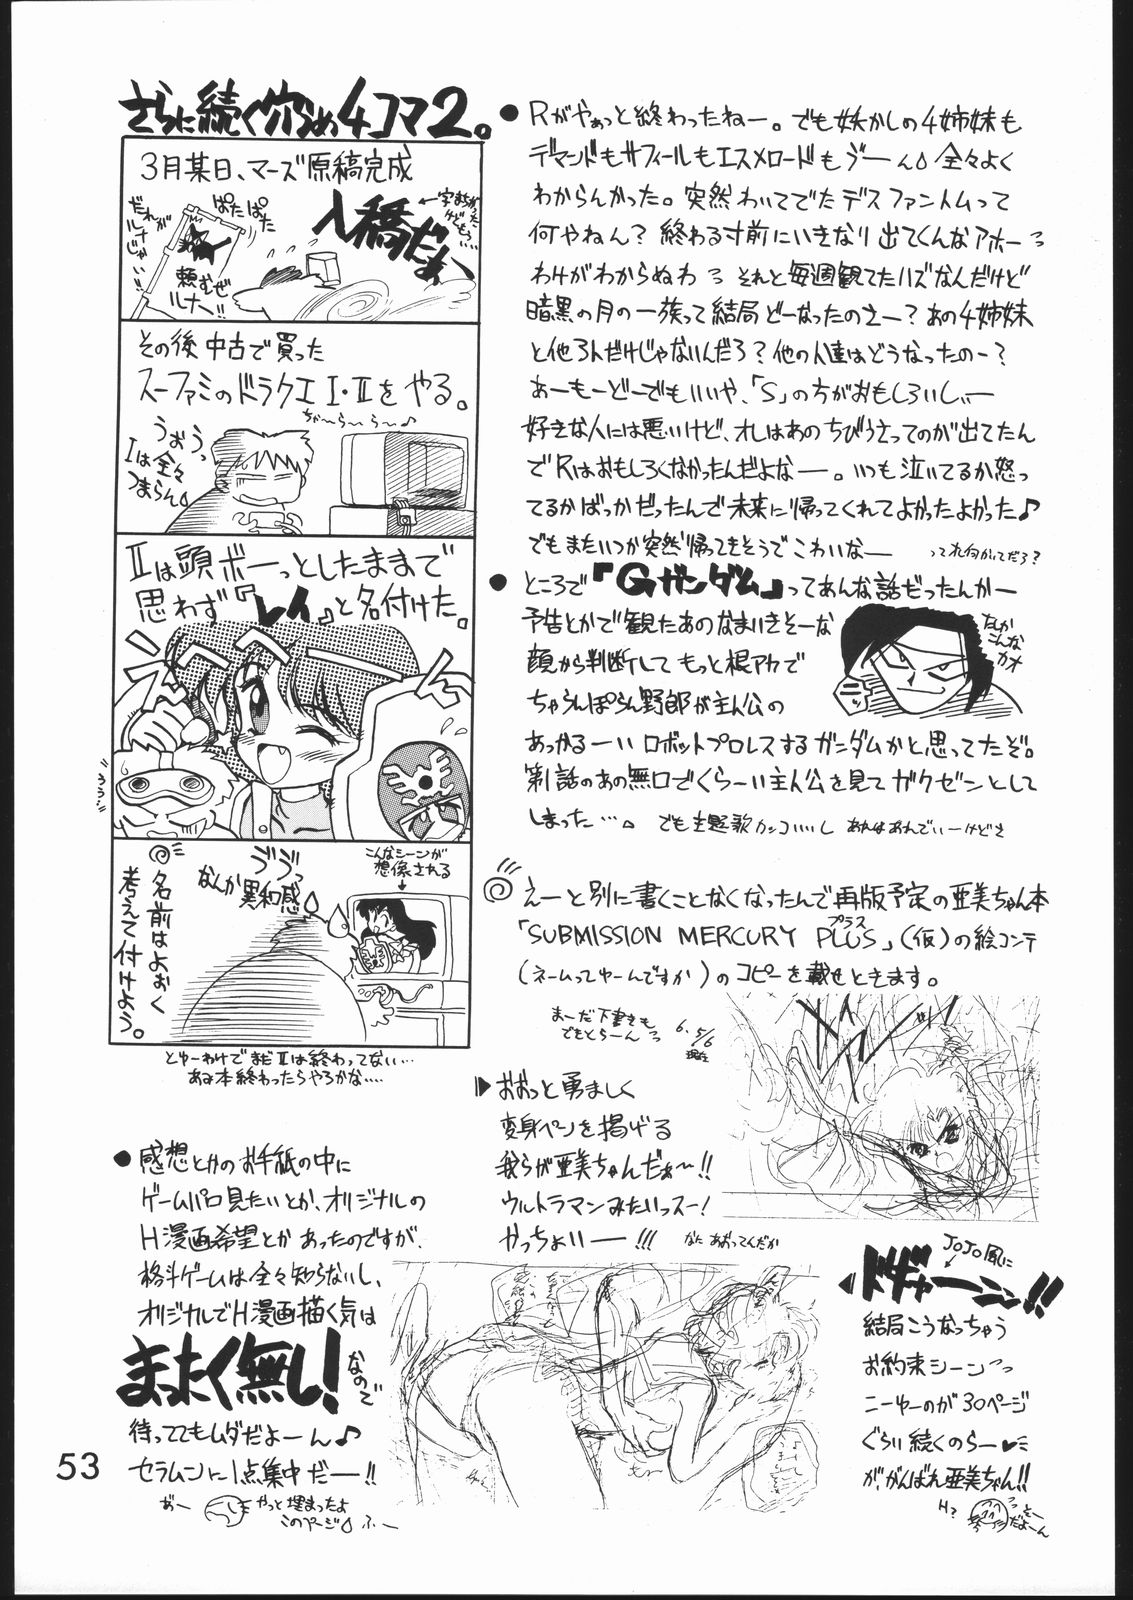 さらに続く穴うめ4コマ2。
3月某日、マーズ原稿完成
入稿だぁ〜
ぱたぱた
だれが
ルナじゃい
頼むぜ
ルナへ!!
その後中古で買った
スーファミのドラクエI・IIをやる。
ちゃ〜ら〜ら〜♪
うぉうっ
Iは全々
つまらん
IIは頭ボーっとしたままで
思わず『レイ』と名付けた。
こんなシーンが
想像される
ヴヴっ
なんか異和感
名前はよおく
考えて付けよう。
とゆーわけでまだIIは終わってない…
あみ本終わったらやろかな‥‥
●Rがやぁっと終わったねー。でも妖かしの4姉妹も
デマンドもサフィールもエスメロードもゔーん 全々よく
わからんかった。突然わいてでたデスファントムって
何やねん?終わる寸前にいきなり出てくんなアホーっ
わけがわからぬわっ それと毎週観てたハズなんだけど
暗黒の月の一族って結局どーなったのさー?あの4姉妹
と他3人だけじゃないんだろ?他の人達はどうなったのー?
あーもーどーでもいいや、「S」の方がおもしろいしぃー
好きな人には悪いけど、オレはあのちびうさってのが出てたん
でRはおもしろくなかったんだよなー。いつも泣いてるか怒っ
てるかばっかだったんで未来に帰ってくれてよかったよかった♪
でもまたいつか突然帰ってきそうでこわいなー
●ところで『Gガンダム』ってあんな話だったんかー
予告とかで観たあのなまいきそーな
顔から判断してもっと根アカで
ちゃらんぽらん野郎が主人公の
あっかるーいロボットプロレスするガンダムかと思ってたぞ。
第1話のあの無口でくらーい主人公を見てガクゼンとして
しまった…。 でも主題歌カッコいいし あれはあれでいーけどさ
なんか
こんな
カオ
えーと別に書くことなくなったんで再版予定の亜美ちゃん本
「SUBMISSION MERCURY PLUS」(仮)の絵コンテ
プラス
(ネームってゆーんですか)のコピーを載せときます。
まーだ下書きも
できとらーんっ
6.5/6
現在
▶おおっと勇ましく
変身ペンを掲げる
我らが亜美ちゃんだぁ〜!!
ウルトラマンみたいっスー!
かっちょいいー!!!
なにあおってんだか
●感想とかのお手紙の中に
ゲームパロ見たいとか、オリジナルの
H漫画希望とかあったのですが、
格斗ゲームは全々知らないし、
オリジナルでH漫画描く気は
まったく無し!なので
待っててもムダだよーん♪
セラムンに1点集中だー!!
おー
やっと埋まったよ
このページ
ふー
JoJo風に
ドギャーーン!!
結局こうなっちゃう
お約束シーンっっ
こーゆーのが30ページ
ぐらい続くのらー♥
がんばれ亜美ちゃん!!
53